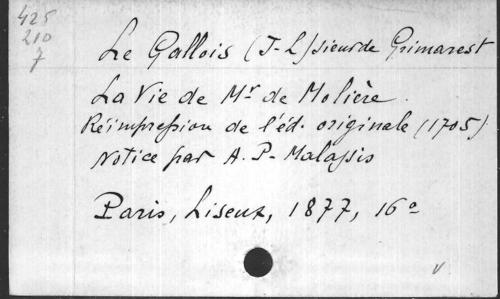 425
210
7
Le Gallois (J-L) sieur de Grimarest
La Vie de Mr de Molière.
Réimpression de l'éd. originale (1705)
Notice par A. P- Malassis
Paris, Liseux, 1877, 16o
v